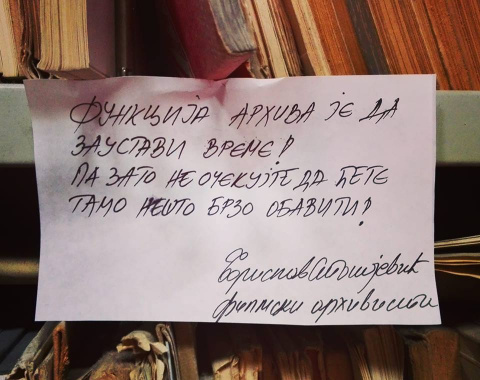 ФУНКЦИЈА АРХИВА ЈЕ ДА
ЗАУСТАВИ ВРЕМЕ!
ПА ЗАТО НЕ ОЧЕКУЈТЕ ДА ЋЕТЕ
ТАМО НЕШТО БРЗО ОБАВИТИ!
Борислав
филмски архивиста